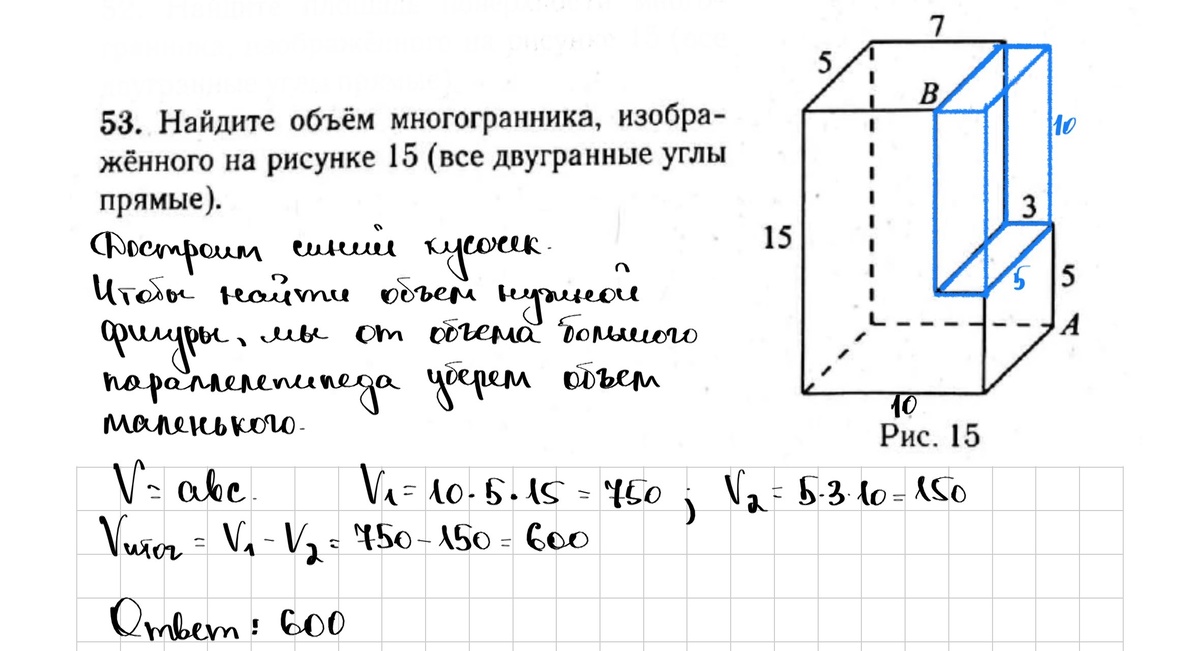 7
5
B
53. Найдите объём многогранника, изобра-
жённого на рисунке 15 (все двугранные углы
прямые).
10
3
15
5
5
A
10
Рис. 15
Достроим синий кусочек.
Чтобы найти объем нужной
фигуры, мы от объема большого
параллелепипеда уберем объем
маленького.
V = abc. V₁ = 10 · 5 · 15 = 750 ; V₂ = 5·3·10 = 150
Vитог = V₁ - V₂ = 750 - 150 = 600
Ответ: 600